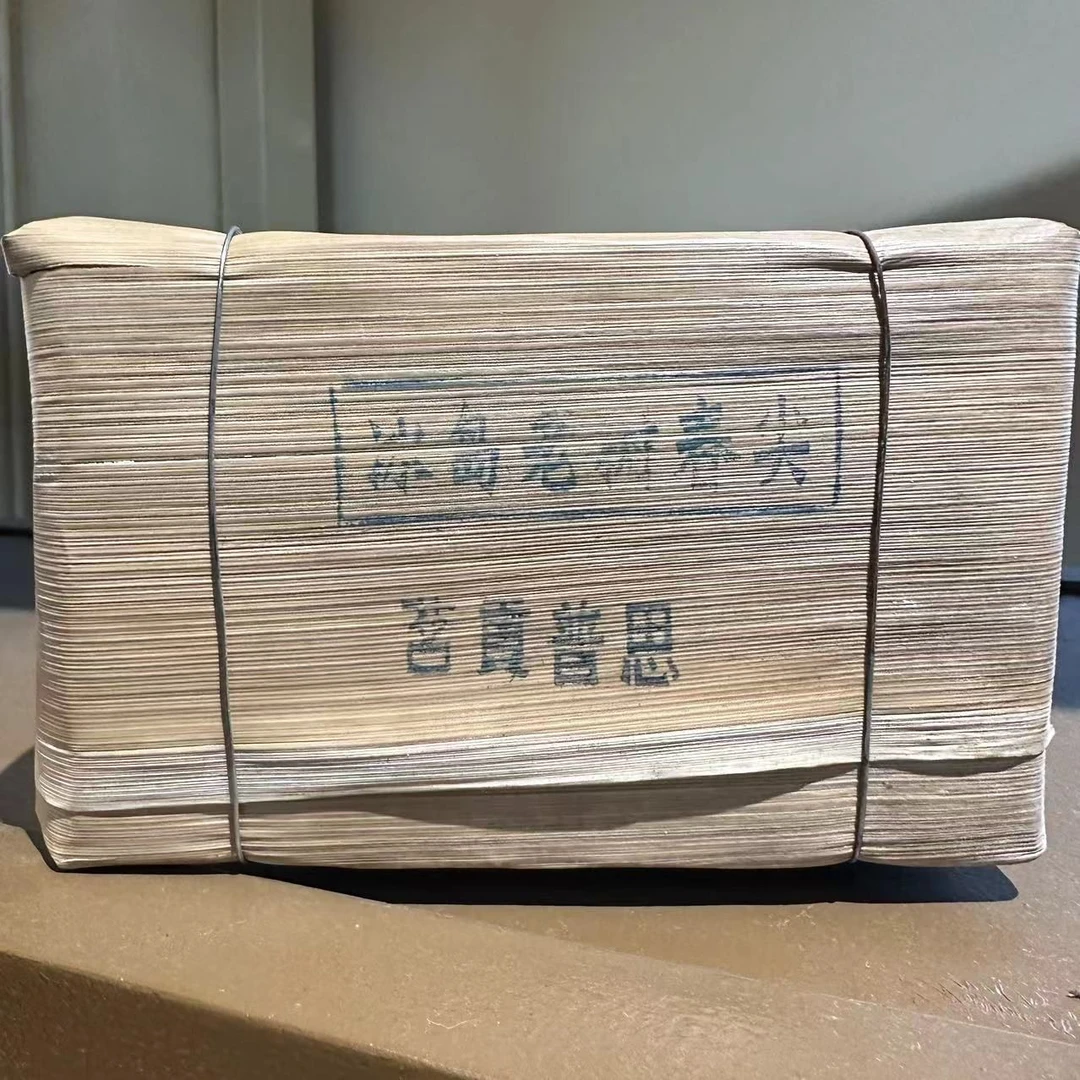 冰岛老树春尖
思普貢茗